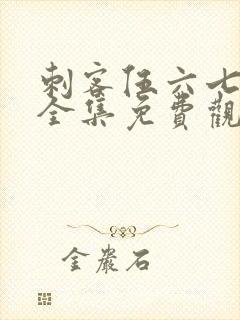 刺客伍六七
全集免費觀
金巖石